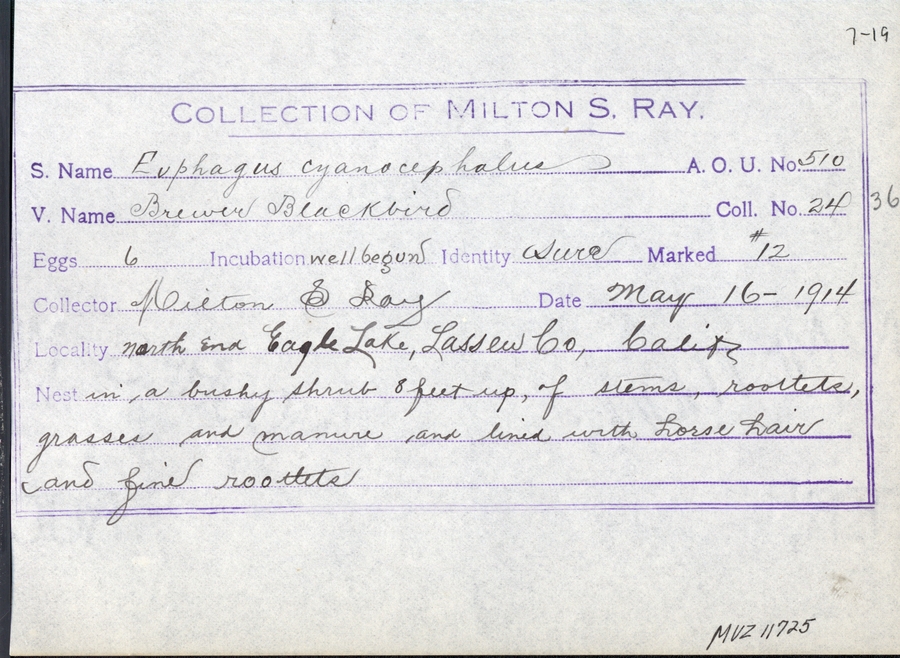 7-19
COLLECTION OF MILTON S. RAY.
S. Name Euphagus cyanocephalus A. O. U. No. 510
V. Name Brewer Blackbird Coll. No. 24 36
Eggs 6 Incubation well begun Identity Sure Marked #12
Collector Milton S Ray Date May 16 - 1914
Locality north end Eagle Lake, Lassen Co, Calif
Nest in a bushy shrub 8 feet up, of stems, roottets,
grasses and manure and lined with horse hair
and fine roottets
MVZ 11725